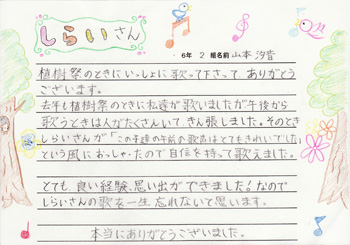 しらいさん
6年 2 組名前 山本 汐音
植樹祭のときにいっしょに歌って下さって、ありがとう
ございます。
去年も植樹祭のときに私達が歌いましたが午後から
歌うときは人がたくさんいて、きん張しました。そのとき
しらいさんが「この子達の午前の歌声はとてもきれいでした」
という風におっしゃったので自信を持って歌えました。
とても、良い経験、思い出ができました!なので
しらいさんの歌を一生忘れないて思います。
本当にありがとうございました。